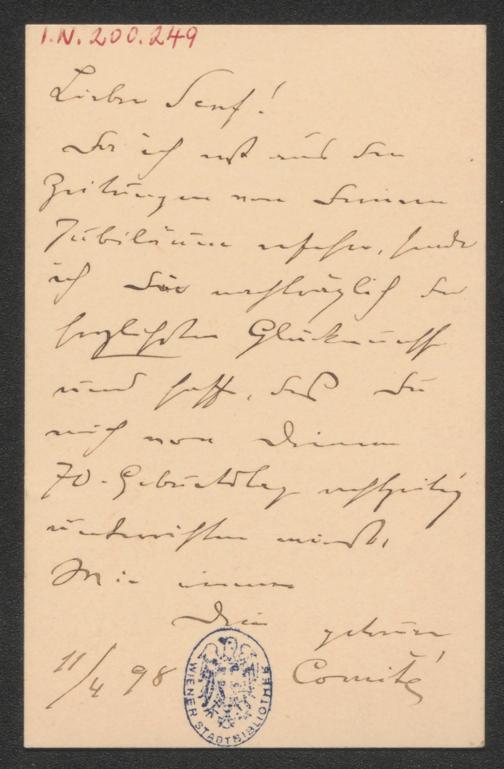 I.N. 200.249
Lieber Senf!
Da ich erst aus den
Zeitungen von Deinem
Jubiläum erfahre, sende
ich Dir nachträglich den
herzlichsten Glückwunsch
und hoffe, daß Du
mich von Deinem
70. Geburtstag rechtzeitig
unterrichten wirst.
Wie immer
Dein getreuer
11/4 98 Comité
WIENER STADTBIBLIOTHEK